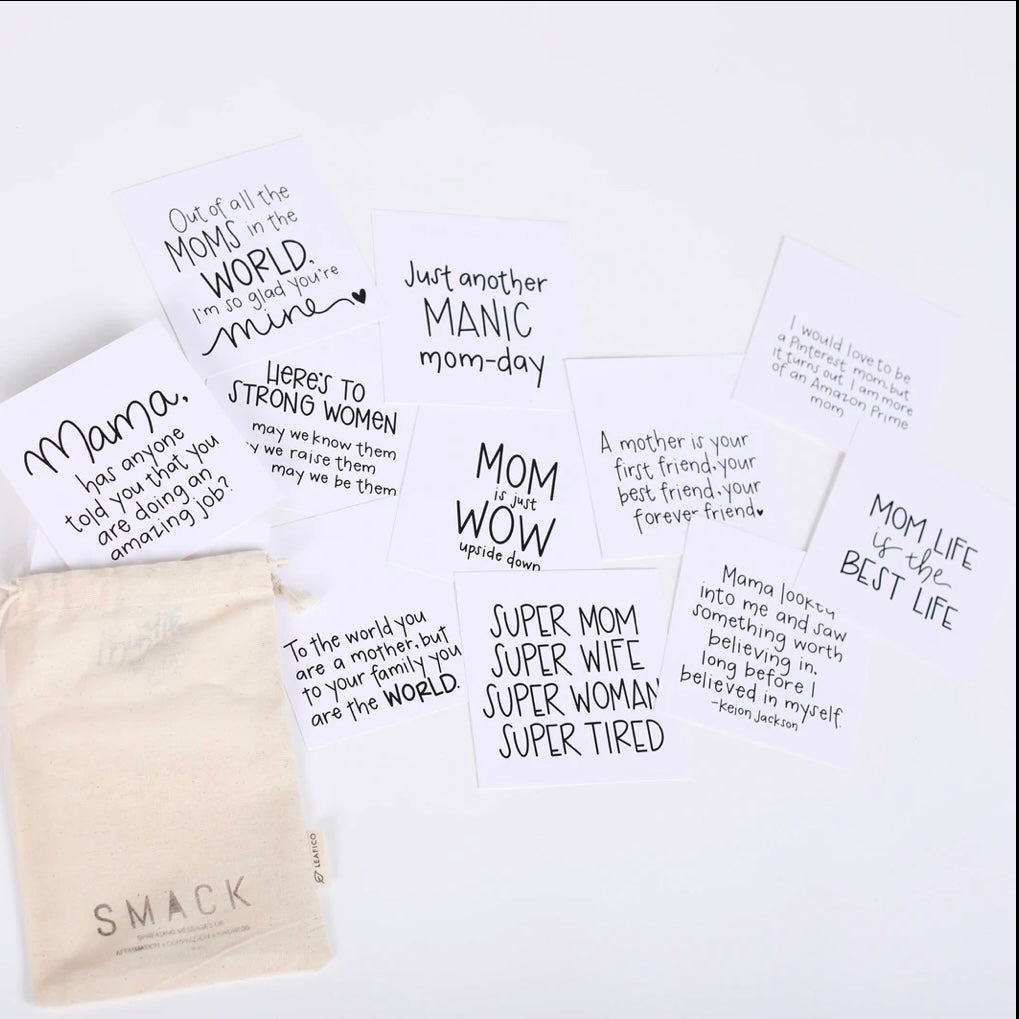 Out of all the
MOMS in the
WORLD,
I'm so glad you're
mine
Just another
MANIC
mom-day
I would love to be
a Pinterest mom but
it turns out I am more
of an Amazon Prime
mom
Mama,
has anyone
told you that you
are doing an
amazing job?
HERE'S TO
STRONG WOMEN
may we know them
y we raise them
may we be them
MOM
is just
WOW
upside down
A mother is your
first friend, your
best friend, your
forever friend
MOM LIFE
is the
BEST LIFE
To the world you
are a mother, but
to your family you
are the WORLD.
SUPER MOM
SUPER WIFE
SUPER WOMAN
SUPER TIRED
Mama looked
into me and saw
something worth
believing in,
long before I
believed in myself.
-Keion Jackson
LEAFICO
SMACK
SPREADING MESSAGES OF
AFFIRMATION + COMPASSION + KINDNESS